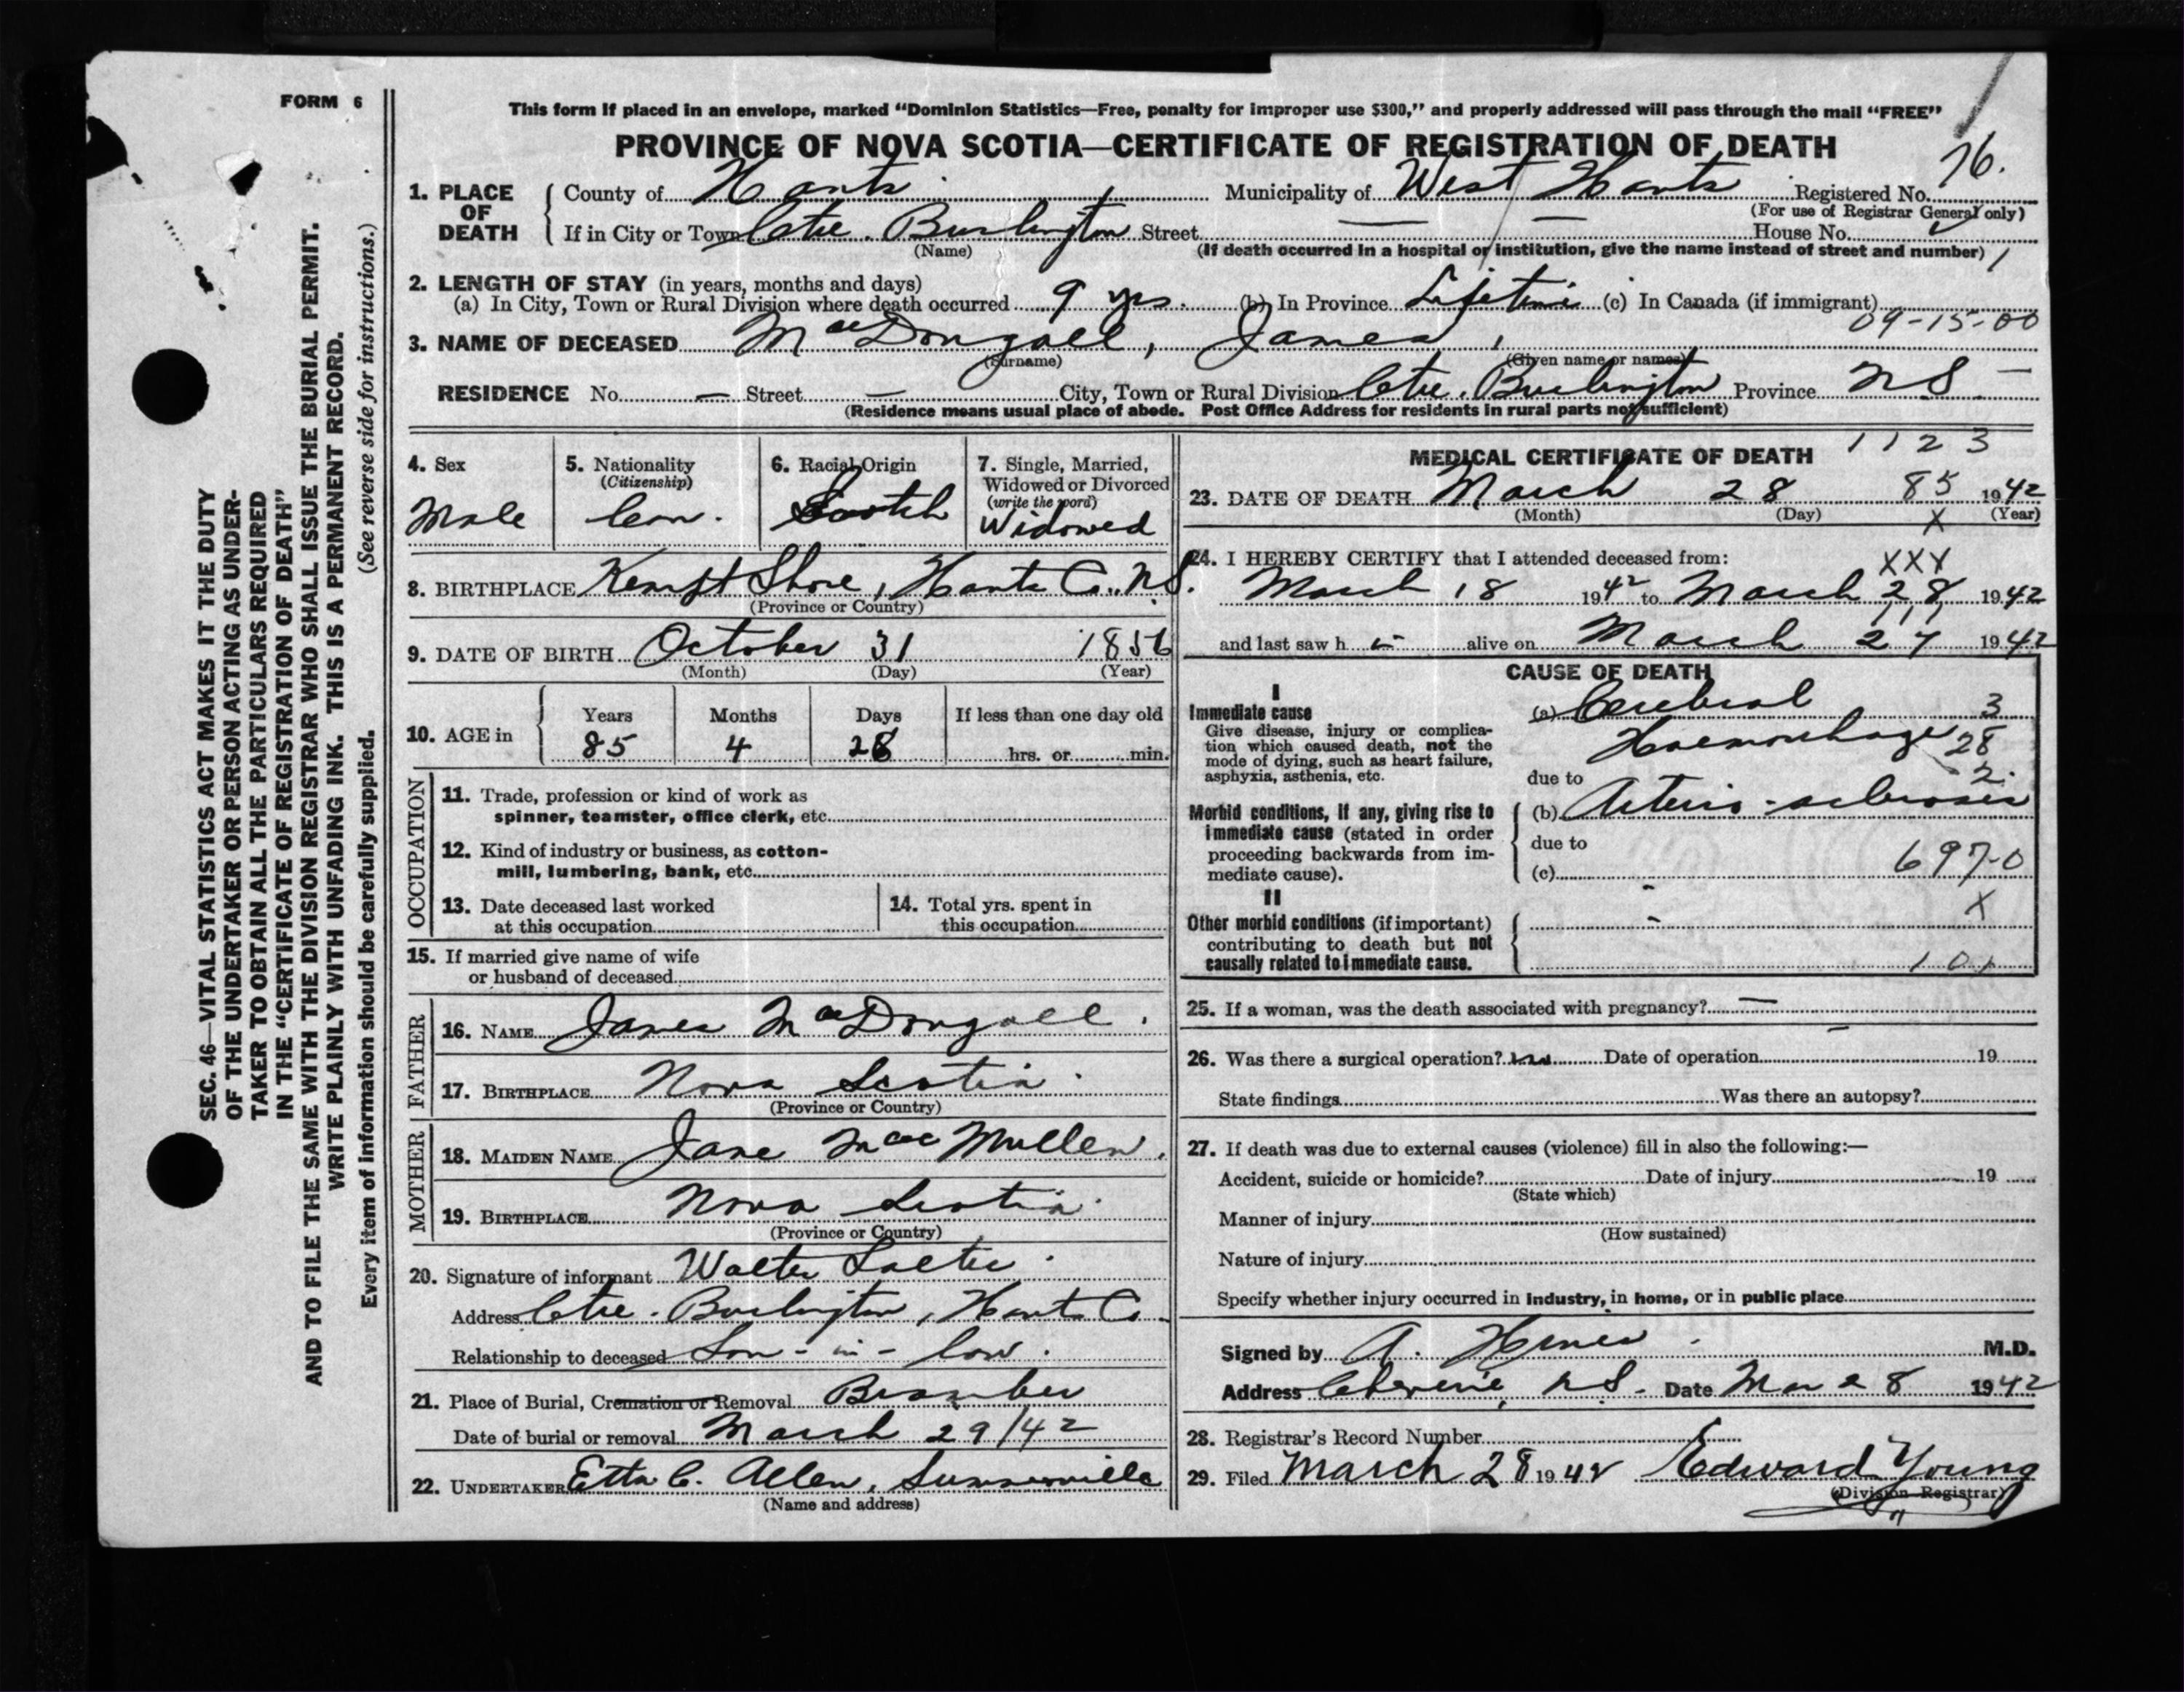 FORM 6
This form if placed in an envelope, marked “Dominion Statistics—Free, penalty for improper use $300,” and properly addressed will pass through the mail “FREE”
PROVINCE OF NOVA SCOTIA—CERTIFICATE OF REGISTRATION OF DEATH
1. PLACE OF DEATH
County of Hants Municipality of West Hants Registered No. 76.
(For use of Registrar General only)
If in City or Town Ctre. Burlington Street — — House No.
(Name) (If death occurred in a hospital or institution, give the name instead of street and number)
2. LENGTH OF STAY (in years, months and days)
(a) In City, Town or Rural Division where death occurred 9 yrs. (b) In Province Lifetime (c) In Canada (if immigrant)
09-15-00
3. NAME OF DECEASED MacDougall, James,
(Surname) (Given name or names)
RESIDENCE No. — Street — City, Town or Rural Division Ctre. Burlington Province NS —
(Residence means usual place of abode. Post Office Address for residents in rural parts not sufficient)
4. Sex
Male
5. Nationality
(Citizenship)
Can.
6. Racial Origin
Scotch
7. Single, Married,
Widowed or Divorced
(write the word)
Widowed
8. BIRTHPLACE Kempt Shore, Hants Co., N.S.
(Province or Country)
9. DATE OF BIRTH October 31 1856
(Month) (Day) (Year)
10. AGE in
Years Months Days If less than one day old
85 4 28 hrs. or min.
OCCUPATION
11. Trade, profession or kind of work as
spinner, teamster, office clerk, etc.
12. Kind of industry or business, as cotton-
mill, lumbering, bank, etc.
13. Date deceased last worked
at this occupation
14. Total yrs. spent in
this occupation
15. If married give name of wife
or husband of deceased
FATHER
16. NAME James MacDougall.
17. BIRTHPLACE Nova Scotia.
(Province or Country)
MOTHER
18. MAIDEN NAME Jane MacMullen.
19. BIRTHPLACE Nova Scotia.
(Province or Country)
20. Signature of informant Walter
Address Ctre. Burlington, Hants Co.
Relationship to deceased Son-in-law.
21. Place of Burial, Cremation or Removal Bramber
Date of burial or removal March 29/42
22. UNDERTAKER Etta C. Allen, Summerville
(Name and address)
MEDICAL CERTIFICATE OF DEATH 1123
23. DATE OF DEATH March 28 85 1942
(Month) (Day) X (Year)
24. I HEREBY CERTIFY that I attended deceased from:
XXX
March 18 1942 to March 28 1942
111
and last saw h alive on March 27 1942
CAUSE OF DEATH
I
Immediate cause
Give disease, injury or complica-
tion which caused death, not the
mode of dying, such as heart failure,
asphyxia, asthenia, etc.
(a) Cerebral 3
Haemorrhage 28
due to 2.
Morbid conditions, if any, giving rise to
immediate cause (stated in order
proceeding backwards from im-
mediate cause).
(b) Arterio-sclerosis
due to
697-0
(c)
II
X
Other morbid conditions (if important)
contributing to death but not
causally related to immediate cause.
101
25. If a woman, was the death associated with pregnancy? —
26. Was there a surgical operation? no Date of operation — 19
State findings Was there an autopsy?
27. If death was due to external causes (violence) fill in also the following:—
Accident, suicide or homicide? Date of injury 19
(State which)
Manner of injury
(How sustained)
Nature of injury
Specify whether injury occurred in industry, in home, or in public place
Signed by A. Hines M.D.
Address Cheverie, N.S. Date Mar 28 1942
28. Registrar's Record Number
29. Filed March 28 1942 Edward Young
(Division Registrar)
SEC. 46—VITAL STATISTICS ACT MAKES IT THE DUTY
OF THE UNDERTAKER OR PERSON ACTING AS UNDER-
TAKER TO OBTAIN ALL THE PARTICULARS REQUIRED
IN THE “CERTIFICATE OF REGISTRATION OF DEATH”
AND TO FILE THE SAME WITH THE DIVISION REGISTRAR WHO SHALL ISSUE THE BURIAL PERMIT.
WRITE PLAINLY WITH UNFADING INK. THIS IS A PERMANENT RECORD.
Every item of information should be carefully supplied. (See reverse side for instructions.)